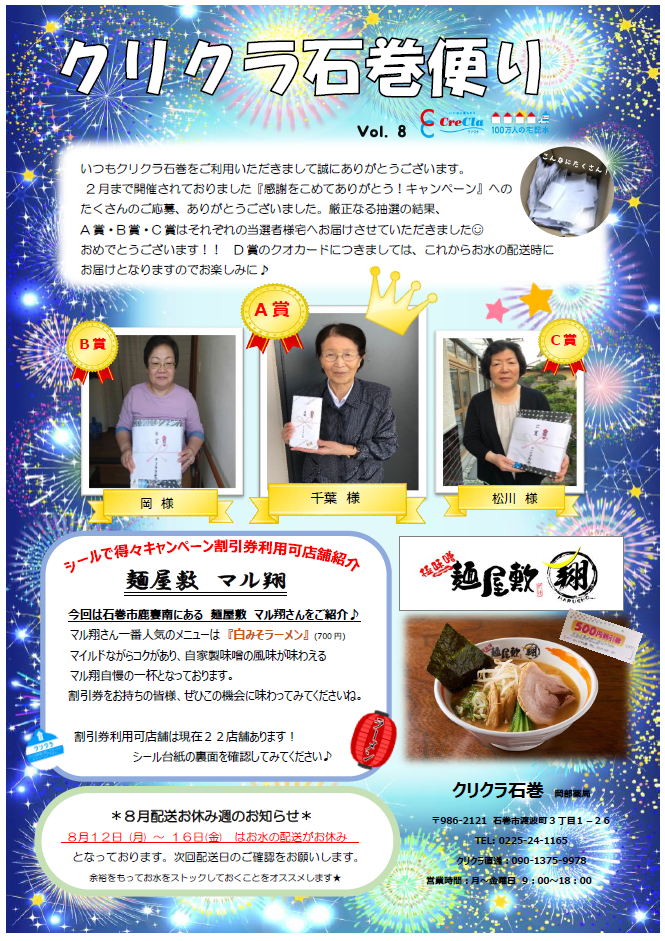 クリクラ石巻便り
Vol. 8
CreCla
クリクラ
100万人の宅配水
こんなにたくさん!
いつもクリクラ石巻をご利用いただきまして誠にありがとうございます。
2月まで開催されておりました『感謝をこめてありがとう!キャンペーン』への
たくさんのご応募、ありがとうございました。厳正なる抽選の結果、
A賞・B賞・C賞はそれぞれの当選者様宅へお届けさせていただきました☺
おめでとうございます!! D賞のクオカードにつきましては、これからお水の配送時に
お届けとなりますのでお楽しみに♪
B賞
A賞
C賞
岡 様
千葉 様
松川 様
シールで得々キャンペーン割引券利用可店舗紹介
麺屋敷 マル翔
今回は石巻市鹿妻南にある 麺屋敷 マル翔さんをご紹介♪
マル翔さん一番人気のメニューは『白みそラーメン』(700円)
マイルドながらコクがあり、自家製味噌の風味が味わえる
マル翔自慢の一杯となっております。
割引券をお持ちの皆様、ぜひこの機会に味わってみてくださいね。
割引券利用可店舗は現在22店舗あります!
シール台紙の裏面を確認してみてください♪
クリクラ
ラーメン
極味噌
麺屋敷
翔
MARUSHO
500円割引券
麺屋敷 翔
*8月配送お休み週のお知らせ*
8月12日(月)~16日(金) はお水の配送がお休み
となっております。次回配送日のご確認をお願いします。
余裕をもってお水をストックしておくことをオススメします★
クリクラ石巻 岡部薬局
〒986-2121 石巻市渡波町3丁目1-26
TEL: 0225-24-1165
クリクラ直通:090-1375-9978
営業時間:月~金曜日 9:00~18:00